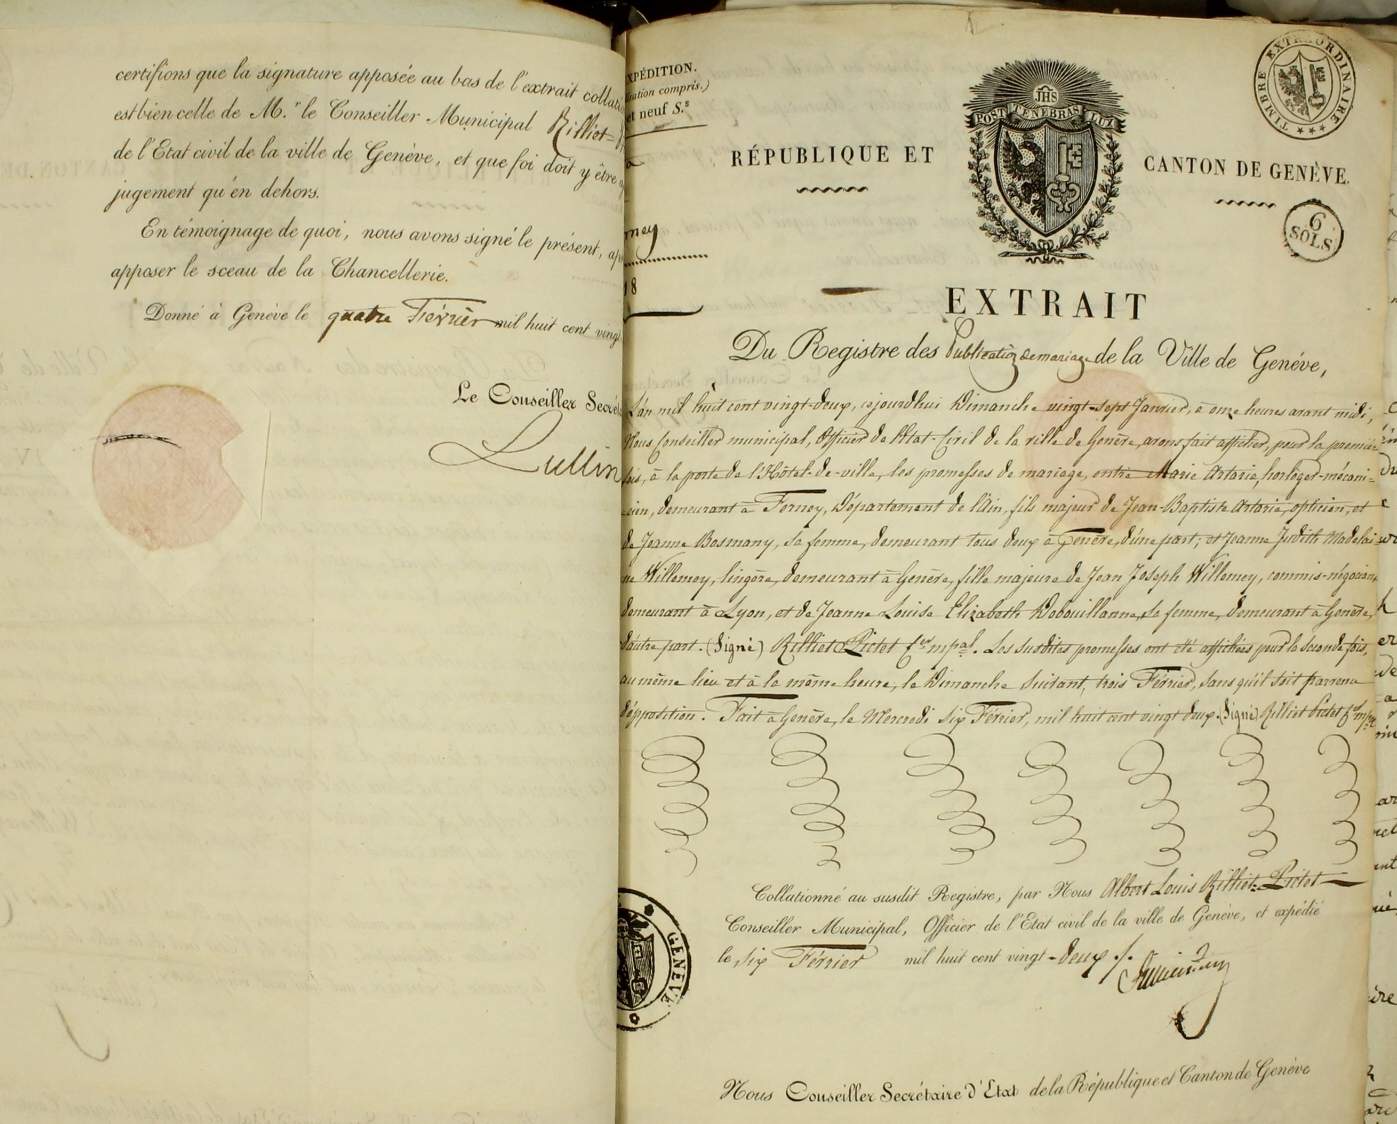 certifions que la signature apposée au bas de l'extrait collati
est bien celle de M.r le Conseiller Municipal Rilliet=
de l'Etat civil de la ville de Genève, et que foi doit y être
jugement qu'en dehors.
En témoignage de quoi, nous avons signé le présent,
apposer le sceau de la Chancellerie.
Donné à Genève le quatre Février mil huit cent vingt
Le Conseiller Secrét
Lullin
XPÉDITION.
ration compris.)
et neuf S.s
rney
8
POST TENEBRAS LUX
JHS
TIMBRE EXTRAORDINAIRE
RÉPUBLIQUE ET CANTON DE GENÈVE.
6 SOLS
EXTRAIT
Du Registre des Publications de mariage de la Ville de Genéve,
L'an mil huit cent vingt-deux, cejourdhui Dimanche vingt-sept Janvier, à onze heures avant midi,
Nous Conseiller municipal, Officier de l'Etat-Civil de la ville de Genève, avons fait afficher, pour la première
fois, à la porte de l'Hôtel-de-ville, les promesses de mariage, entre Marie Artaria, horloger-mécani=
cien, demeurant à Ferney, Département de l'Ain, fils majeur de Jean-Baptiste Artaria, opticien, et
de Jeanne Bosmany, sa femme, demeurant tous deux à Genève, d'une part; et Jeanne Judith Madelai=
ne Willemey, lingère, demeurant à Genève, fille majeure de Jean Joseph Willemey, commis-négociant
demeurant à Lyon, et de Jeanne Louise Elizabeth Debouillanne, sa femme, demeurant à Genève,
d'autre part. (Signé) Rilliet Pictet Cer mpal. Les susdites promesses ont été affichées pour la seconde fois,
au même lieu et à la même heure, le Dimanche suivant, trois Février, sans qu'il soit parvenu
d'opposition. Fait à Genève, le Mercredi six Février, mil huit cent vingt deux (Signé) Rilliet Pictet Cer mpal
Collationné au susdit Registre, par Nous Albert Louis Rilliet-Pictet
Conseiller Municipal, Officier de l'Etat civil de la ville de Genève, et expédié
le six Février mil huit cent vingt-deux
GENÈVE
Nous Conseiller Secrétaire d'Etat de la République et Canton de Genève